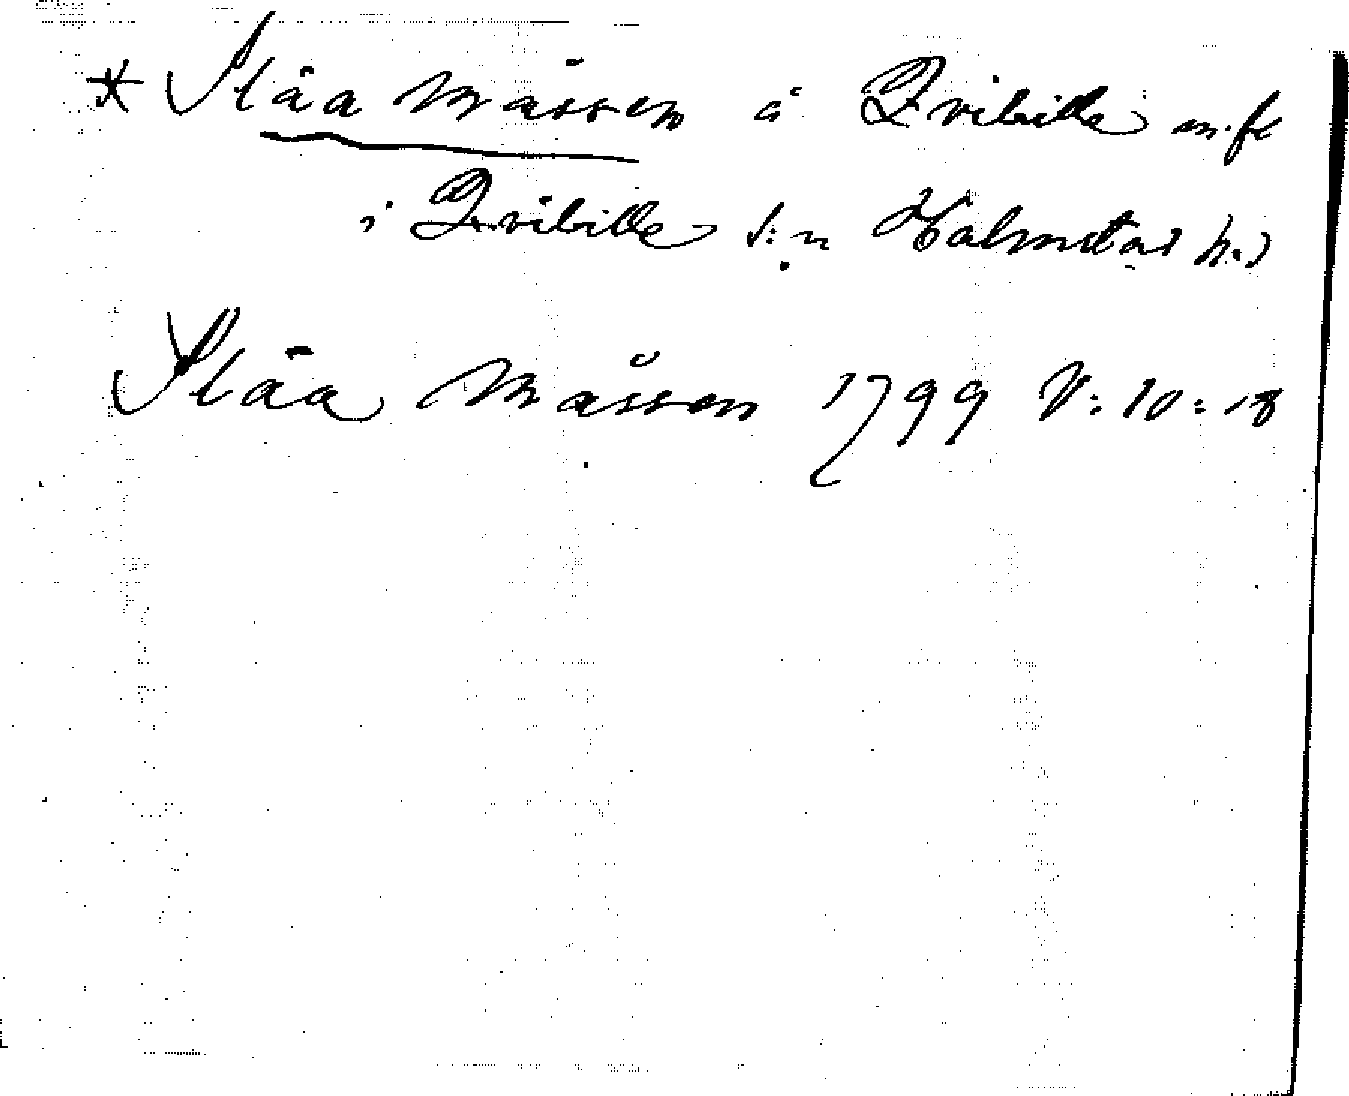 * Slåa Måssen å Qvibille m.fl
i Qvibille s:n Halmstad h.d
Slåa Måssen 1799 V:10:18